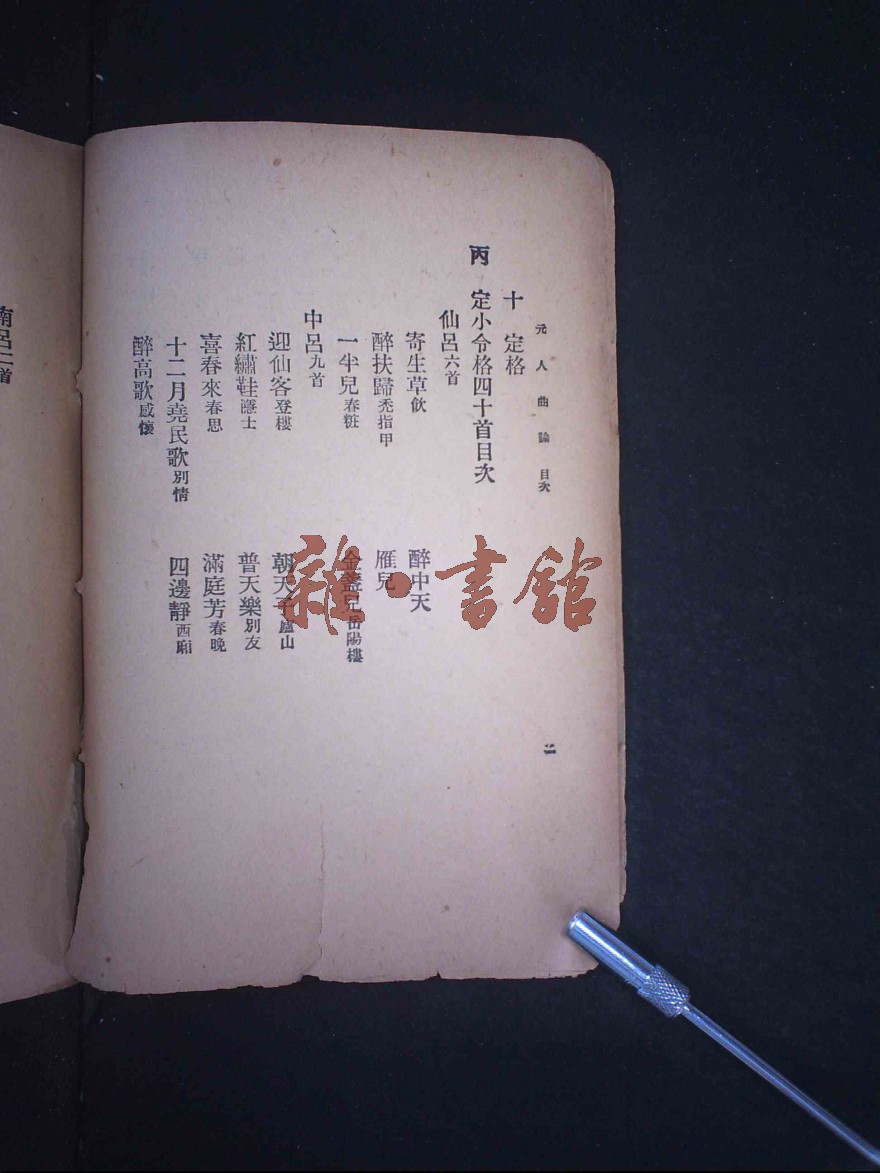 元人曲論 目次
二
十 定格
丙 定小令格四十首目次
仙呂六首
寄生草飲 醉中天
醉扶歸禿指甲 雁兒
一半兒春粧 金盞兒岳陽樓
中呂九首
迎仙客登樓 朝天子廬山
紅繡鞋隱士 普天樂別友
喜春來春思 滿庭芳春晚
十二月堯民歌別情 四邊靜西廂
醉高歌感懷
南呂二首
雜·書館